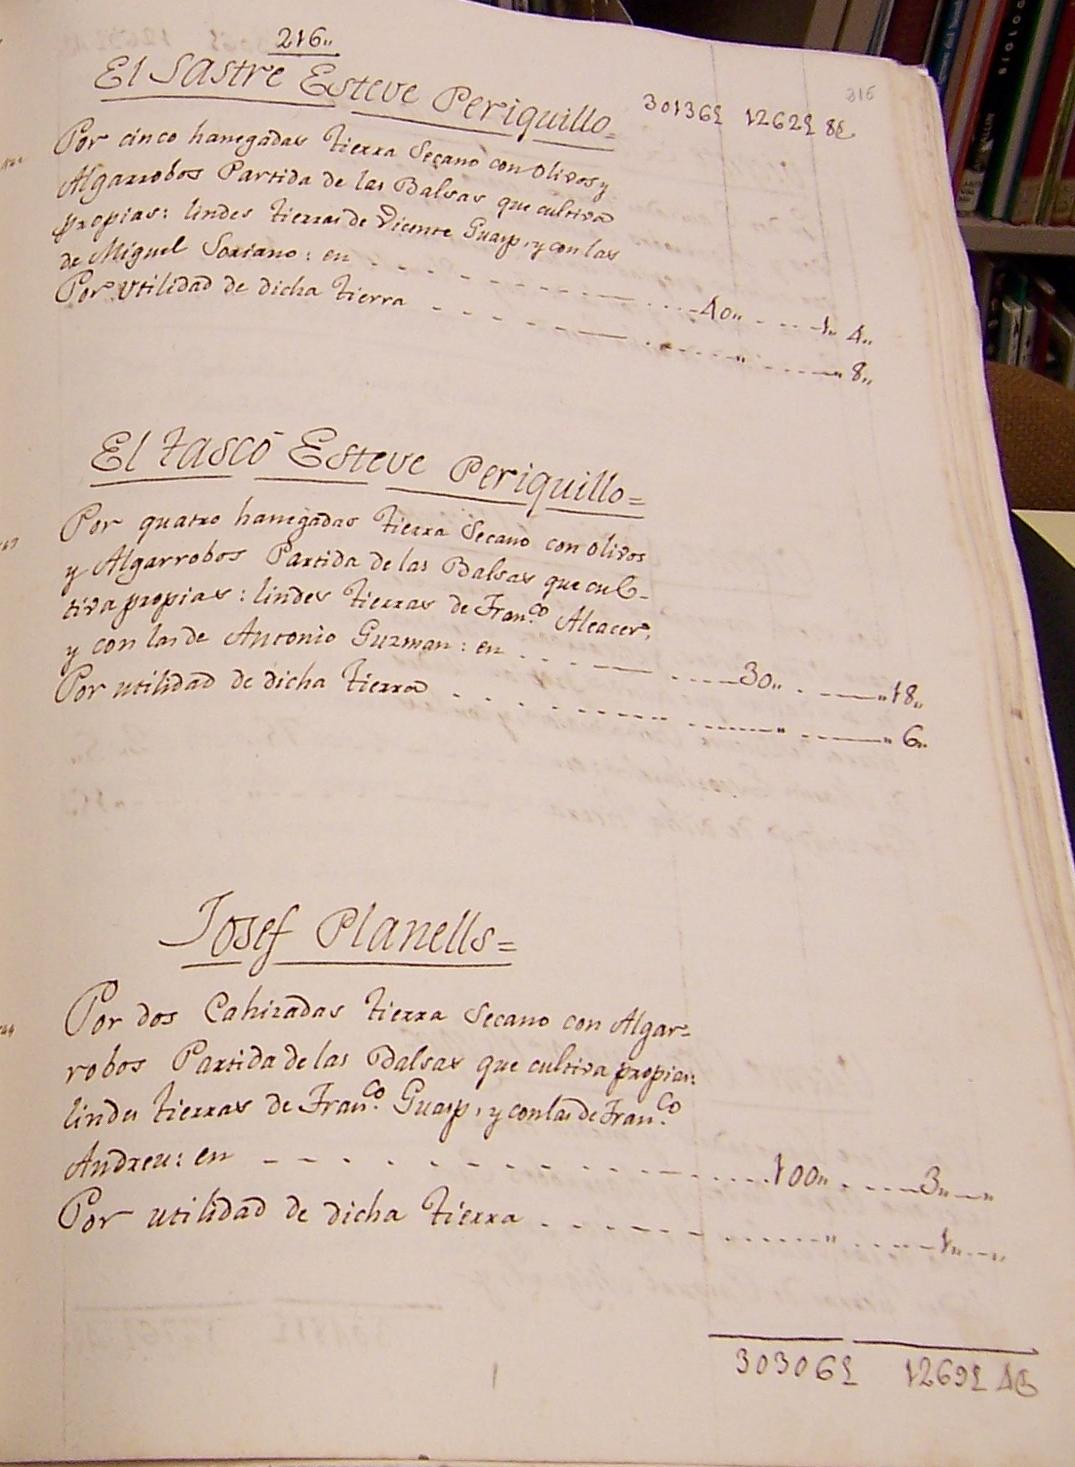 216,,
316
El Sastre Esteve Periquillo=
30136£ 1262£ 8S
Por cinco hanegadas tierra Secano con Olivos y
Algarrobos Partida de las Balsas que cultiva
propias: lindes tierras de Vicente Guasp, y con las
de Miguel Soriano: en . . . 40,, . . . 1,, 4,,
Por utilidad de dicha tierra . . . ,, . . . ,, 8,,
El tascó Esteve Periquillo=
Por quatro hanegadas tierra Secano con olivos
y Algarrobos Partida de las Balsas que cul-
tiva propias: lindes tierras de Fran.co Alcacer,
y con las de Antonio Guzman: en . . . 30,, . . . ,, 18,,
Por utilidad de dicha tierra . . . ,, . . . ,, 6,,
Josef Planells=
Por dos Cahizadas tierra Secano con Algar-
robos Partida de las Balsas que cultiva propias:
lindes tierras de Fran.co Guasp, y con las de Fran.co
Andreu: en . . . 100,, . . . 3,, ,,
Por utilidad de dicha tierra . . . ,, . . . 1,, ,,
30306£ 1269£ 4S
BIOLOG